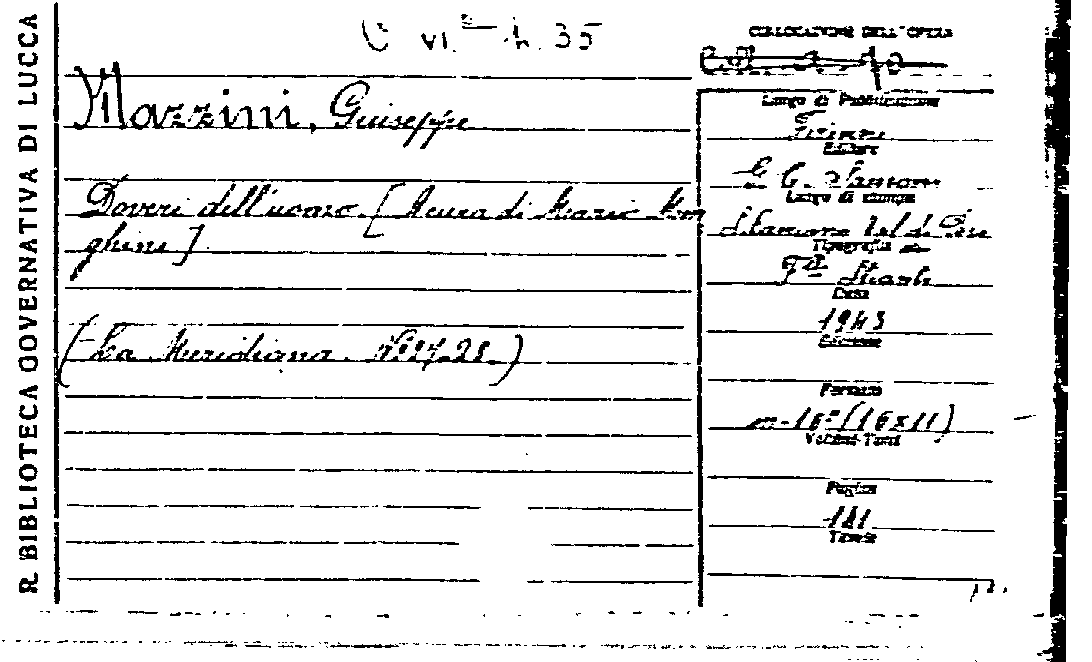 R. BIBLIOTECA GOVERNATIVA DI LUCCA
C VI. h. 35
COLLOCAZIONE DELL'OPERA
Mazzini, Giuseppe
Doveri dell'uomo. [A cura di Mario
ghini]
(La Meridiana. N. 27-28.)
Luogo di Pubblicazione
Firenze
Editore
G. C. Sansoni
Luogo di stampa
Tipografia
Data
1943
Edizione
Formato
in-16º (16x11)
Volumi-Tomi
Pagine
181
Tavole